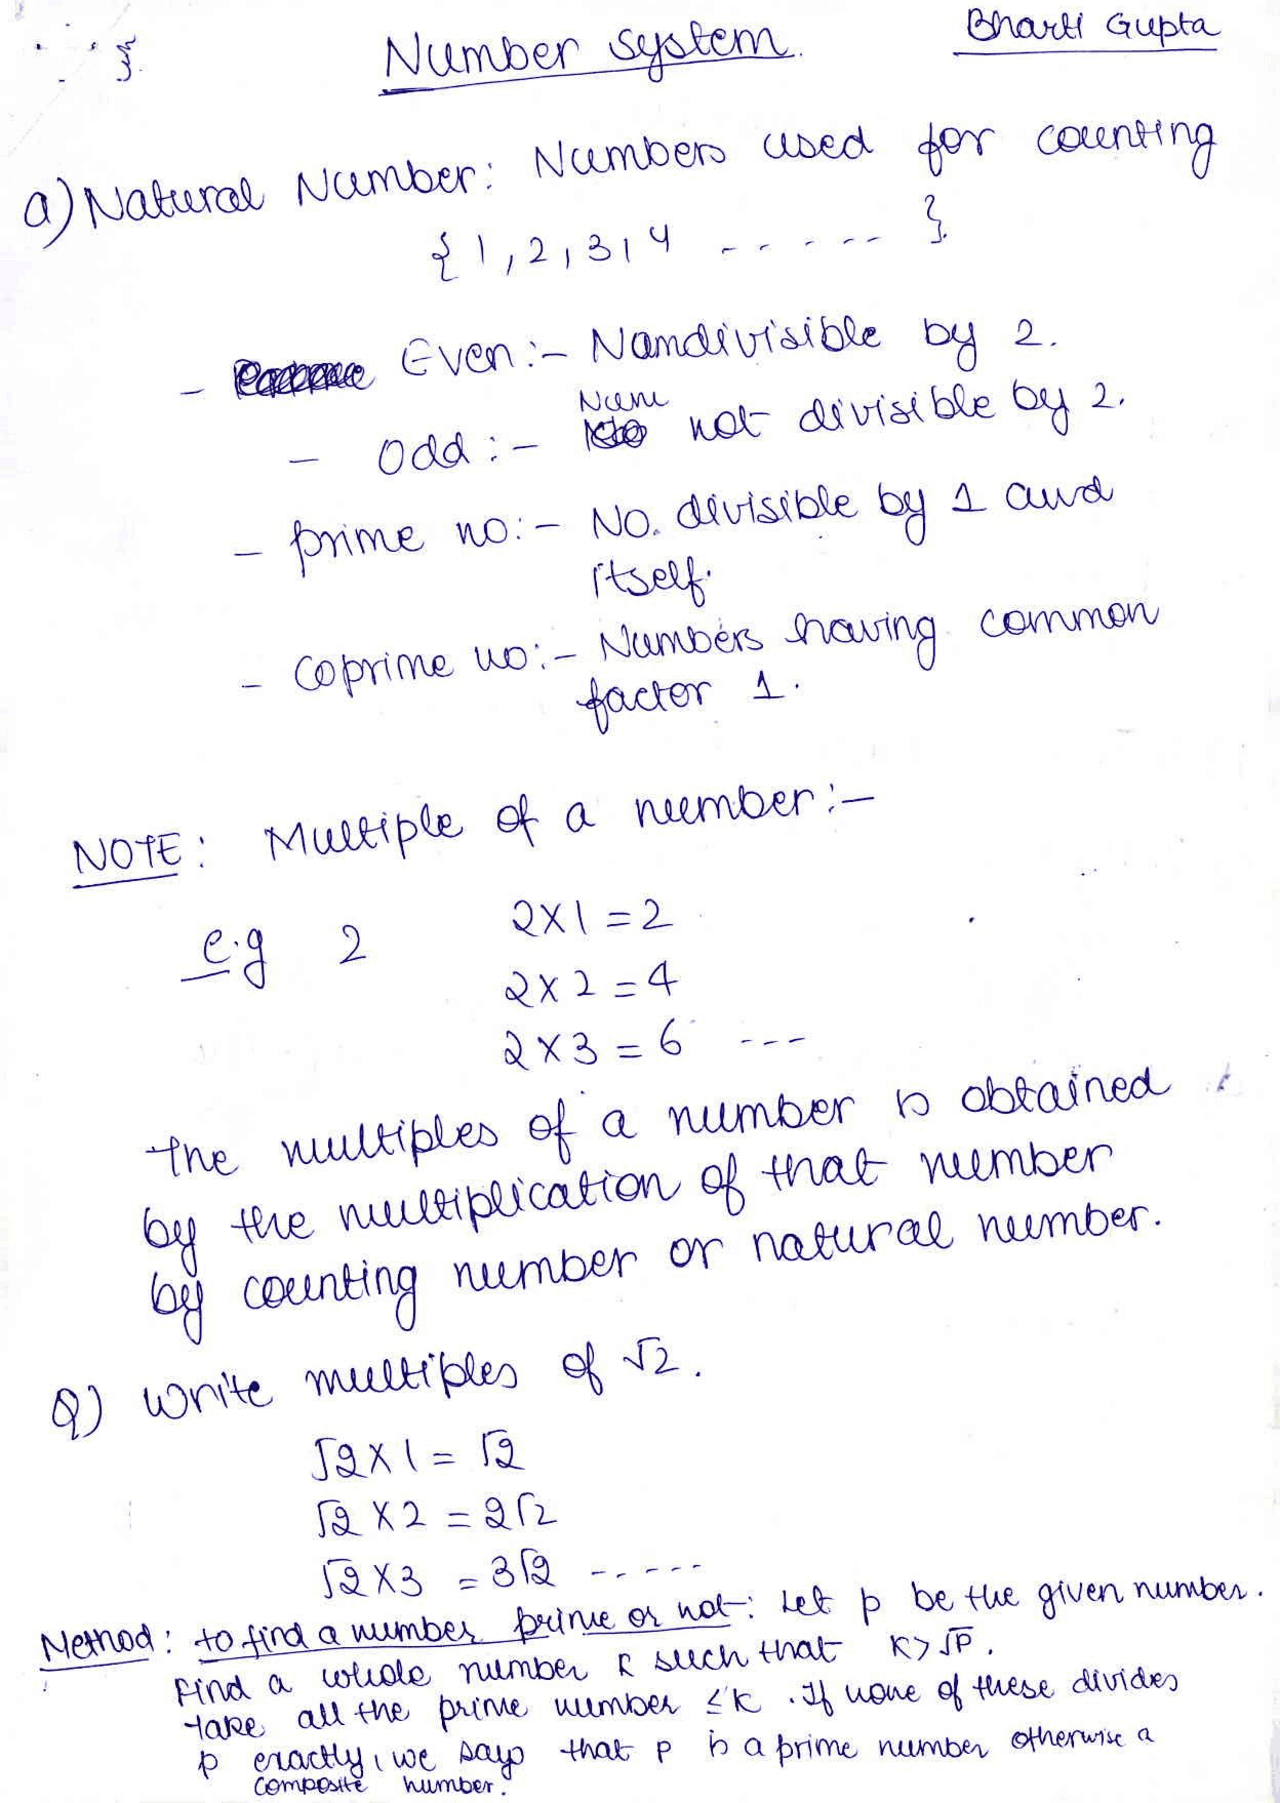 Number system.
Bharti Gupta
a) Natural Number: Numbers used for counting
{1, 2, 3, 4 ------ }.
- Even:- Num divisible by 2.
- Odd:- Num not divisible by 2.
- prime no:- No. divisible by 1 and
itself.
- coprime no:- Numbers having common
factor 1.
NOTE: Multiple of a number:-
e.g 2 2×1=2
2×2=4
2×3=6 ---
The multiples of a number is obtained
by the multiplication of that number
by counting number or natural number.
Q) Write multiples of √2.
√2×1=√2
√2×2=2√2
√2×3=3√2 -----
Method: to find a number prime or not: Let p be the given number.
Find a whole number k such that k>√P.
Take all the prime number ≤k. If none of these divides
p exactly, we says that p is a prime number otherwise a
composite number.